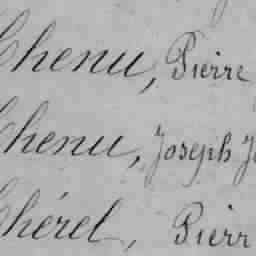 Chenu, Pierre
Chenu, Joseph J
Chérel, Pierr